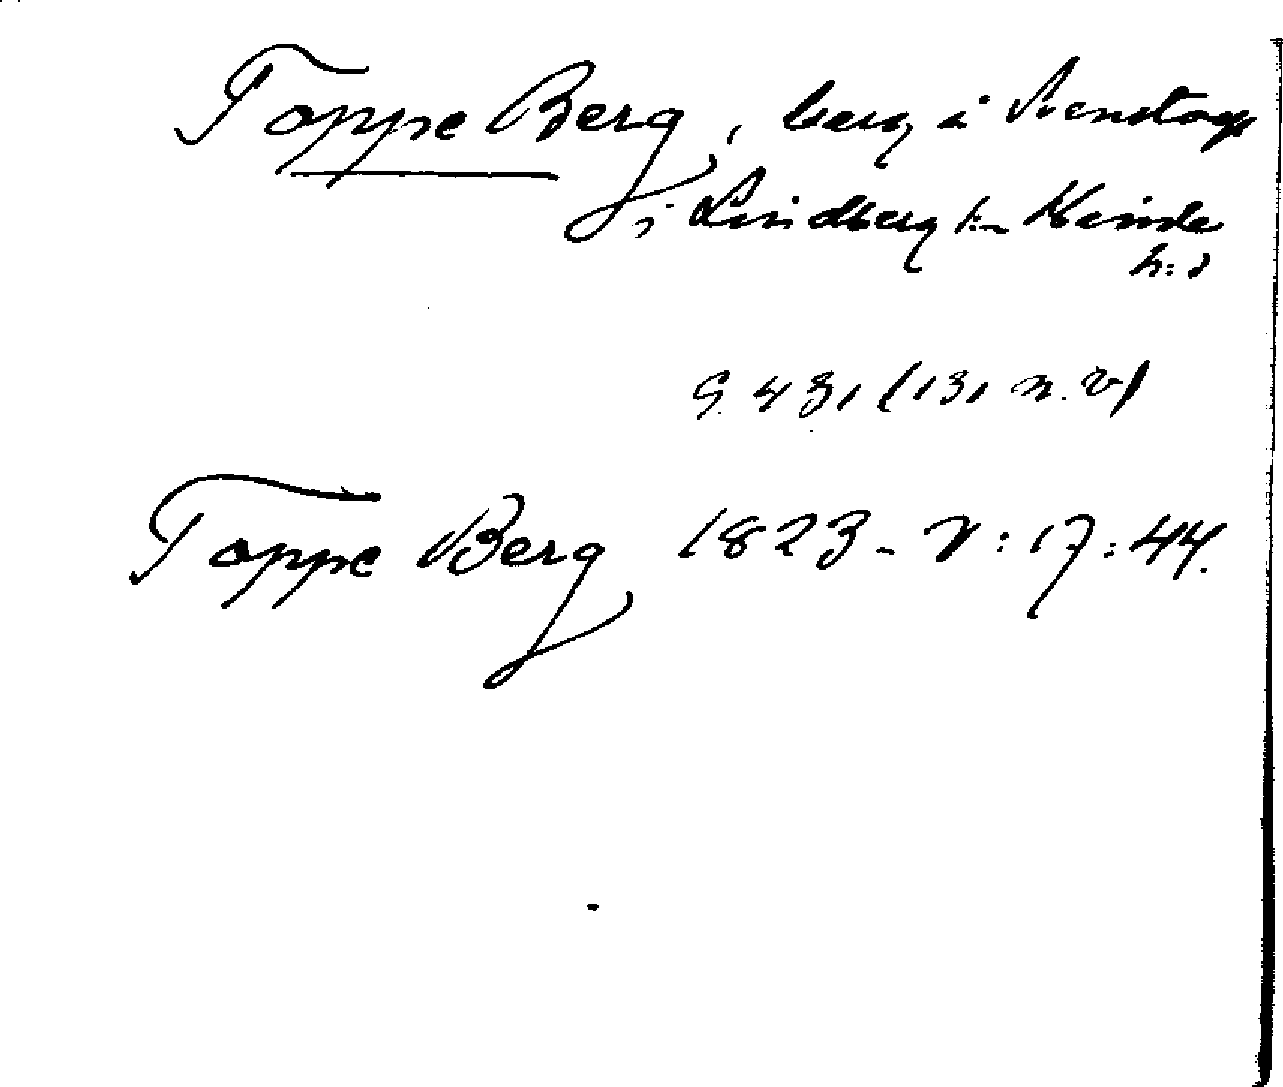 Toppe Berg, berg i Svenstorp
i Lindberg sn Kinds
h:d
S. 431 (131 n. v)
Toppe Berg 1823 - V: 17: 44.